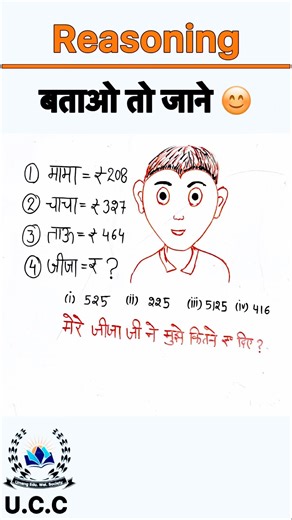 Reasoning
बताओ तो जाने 😊
① मामा = ₹208
② चाचा = ₹327
③ ताऊ = ₹464
④ जीजा = ₹ ?
(i) 525 (ii) 225 (iii) 5125 (iv) 416
मेरे जीजा जी ने मुझे कितने रू दिए ?
U.C.C